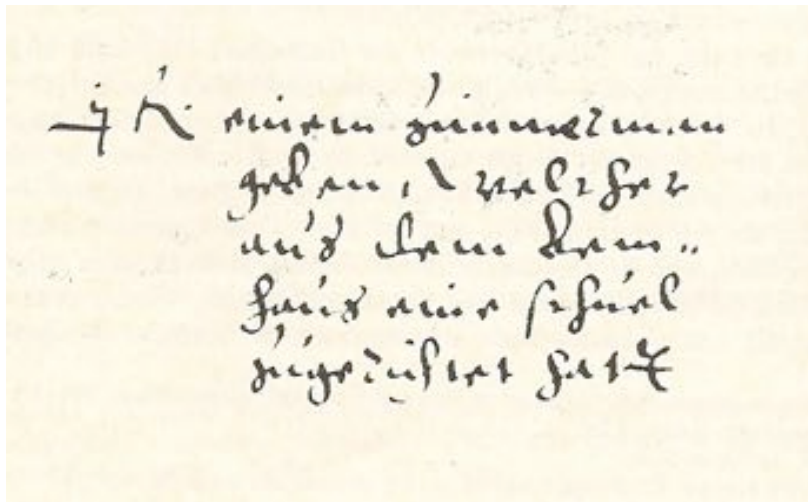 einem zimmerman
geben, welcher
aus dem
haus eine schuel
zugerichtet hat